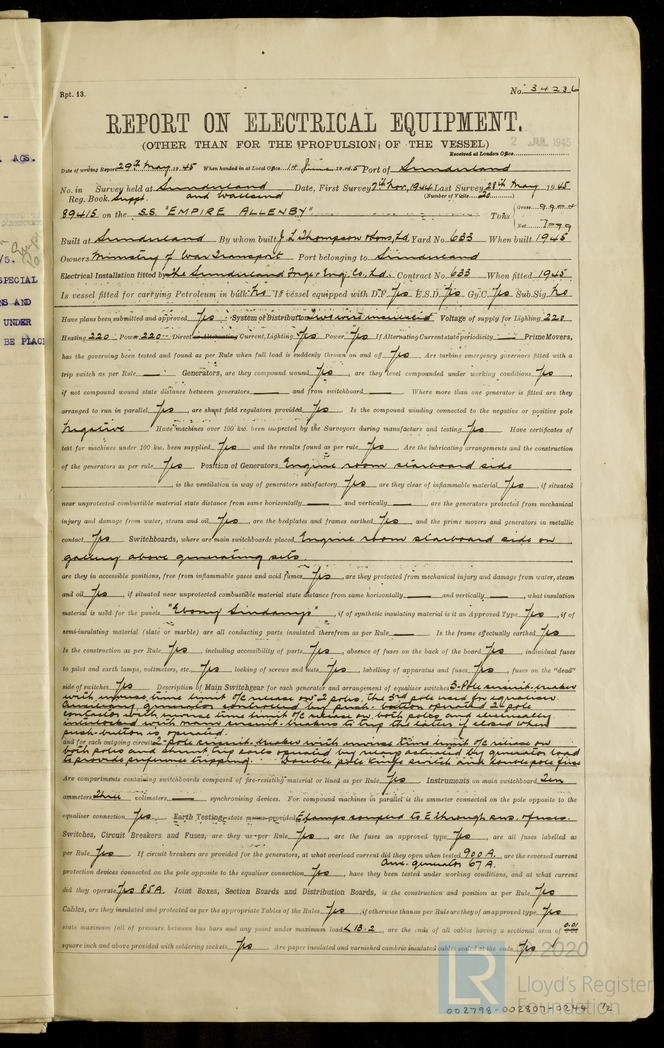 Rpt. 13.
No. 34286
REPORT ON ELECTRICAL EQUIPMENT.
(OTHER THAN FOR THE PROPULSION OF THE VESSEL)
2 JUL 1945
Received at London Office
Date of writing Report 29th May 1945 When handed in at Local Office 14 June 1945 Port of Sunderland
No. in Survey held at Sunderland and Wallsend Date, First Survey 7th Nov. 1944 Last Survey 28th May 1945
Reg. Book. Suppt. (Number of Visits 20)
89415 on the S.S. "EMPIRE ALLENBY" Tons { Gross 9904 Net 7099
Built at Sunderland By whom built J. L. Thompson & Sons, Ld. Yard No. 633 When built 1945
Owners Ministry of War Transport Port belonging to Sunderland
Electrical Installation fitted by The Sunderland Forge & Eng. Co. Ld. Contract No. 633 When fitted 1945
Is vessel fitted for carrying Petroleum in bulk No Is vessel equipped with D.F. Yes E.S.D. Yes Gy.C. Yes Sub.Sig. No
Have plans been submitted and approved Yes System of Distribution Two wire insulated Voltage of supply for Lighting 220
Heating 220 Power 220 Direct or Alternating Current, Lighting Yes Power Yes If Alternating Current state periodicity — Prime Movers,
has the governing been tested and found as per Rule when full load is suddenly thrown on and off Yes Are turbine emergency governors fitted with a
trip switch as per Rule — Generators, are they compound wound Yes, are they level compounded under working conditions Yes,
if not compound wound state distance between generators — and from switchboard — Where more than one generator is fitted are they
arranged to run in parallel Yes, are shunt field regulators provided Yes Is the compound winding connected to the negative or positive pole
Negative Have machines over 100 kw. been inspected by the Surveyors during manufacture and testing Yes Have certificates of
test for machines under 100 kw. been supplied Yes and the results found as per rule Yes Are the lubricating arrangements and the construction
of the generators as per rule Yes Position of Generators Engine room starboard side
is the ventilation in way of generators satisfactory Yes are they clear of inflammable material Yes, if situated
near unprotected combustible material state distance from same horizontally — and vertically —, are the generators protected from mechanical
injury and damage from water, steam and oil Yes, are the bedplates and frames earthed Yes and the prime movers and generators in metallic
contact Yes Switchboards, where are main switchboards placed Engine room starboard side on
gallery above generating sets.
are they in accessible positions, free from inflammable gases and acid fumes Yes, are they protected from mechanical injury and damage from water, steam
and oil Yes, if situated near unprotected combustible material state distance from same horizontally — and vertically —, what insulation
material is used for the panels "Ebony Sindanyo", if of synthetic insulating material is it an Approved Type Yes, if of
semi-insulating material (slate or marble) are all conducting parts insulated therefrom as per Rule — Is the frame effectually earthed Yes
Is the construction as per Rule Yes, including accessibility of parts Yes, absence of fuses on the back of the board Yes, individual fuses
to pilot and earth lamps, voltmeters, etc. Yes locking of screws and nuts Yes, labelling of apparatus and fuses Yes, fuses on the "dead"
side of switches Yes Description of Main Switchgear for each generator and arrangement of equaliser switches 3-Pole circuit-breaker
with inverse time limit O/C release on 2 poles, the 3rd pole used for equaliser.
Auxiliary generator controlled by push-button operated 2-pole
contactor with inverse time limit O/C release on both poles and electrically
interlocked with main circuit-breakers to trip the latter if closed when
push-button is operated.
and for each outgoing circuit 2-pole circuit-breaker with inverse time limit O/C release on
both poles and shunt trip coils operated by relays actuated by generator load
to provide preference tripping. Double pole knife switch and double pole fuses
Are compartments containing switchboards composed of fire-resisting material or lined as per Rule Yes Instruments on main switchboard Ten
ammeters Three voltmeters — synchronising devices. For compound machines in parallel is the ammeter connected to the pole opposite to the
equaliser connection Yes. Earth Testing, state means provided E lamps coupled to E through sws. & fuses.
Switches, Circuit Breakers and Fuses, are they as per Rule Yes, are the fuses an approved type Yes, are all fuses labelled as
per Rule Yes If circuit breakers are provided for the generators, at what overload current did they open when tested 900 A., are the reversed current
Aux. generator 67 A.
protection devices connected on the pole opposite to the equaliser connection Yes, have they been tested under working conditions, and at what current
did they operate Yes 85 A. Joint Boxes, Section Boards and Distribution Boards, is the construction and position as per Rule Yes
Cables, are they insulated and protected as per the appropriate Tables of the Rules Yes, if otherwise than as per Rule are they of an approved type Yes
state maximum fall of pressure between bus bars and any point under maximum load < 13.2 are the ends of all cables having a sectional area of 0.01
square inch and above provided with soldering sockets Yes Are paper insulated and varnished cambric insulated cables sealed at the ends Yes
© 2020
LR Lloyd's Register
Foundation
002798-002807-0244 1/2
AGS.
SPECIAL
NS AND
UNDER
BE PLAC